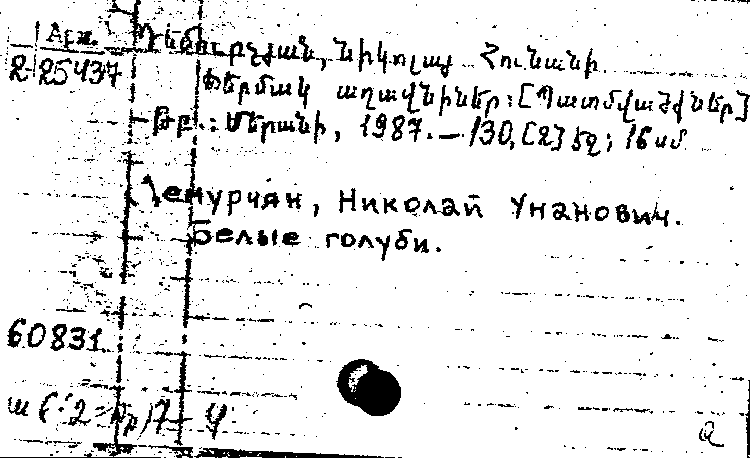 Арх. Դեմուրչյան, Նիկոլայ Հունանի
2-25437 Ճերմակ աղավնիներ: [Պատմվածքներ]
Թբ.: Մերանի, 1987. — 130, [2] էջ; 16 սմ
Демурчян, Николай Унанович.
Белые голуби.
60831